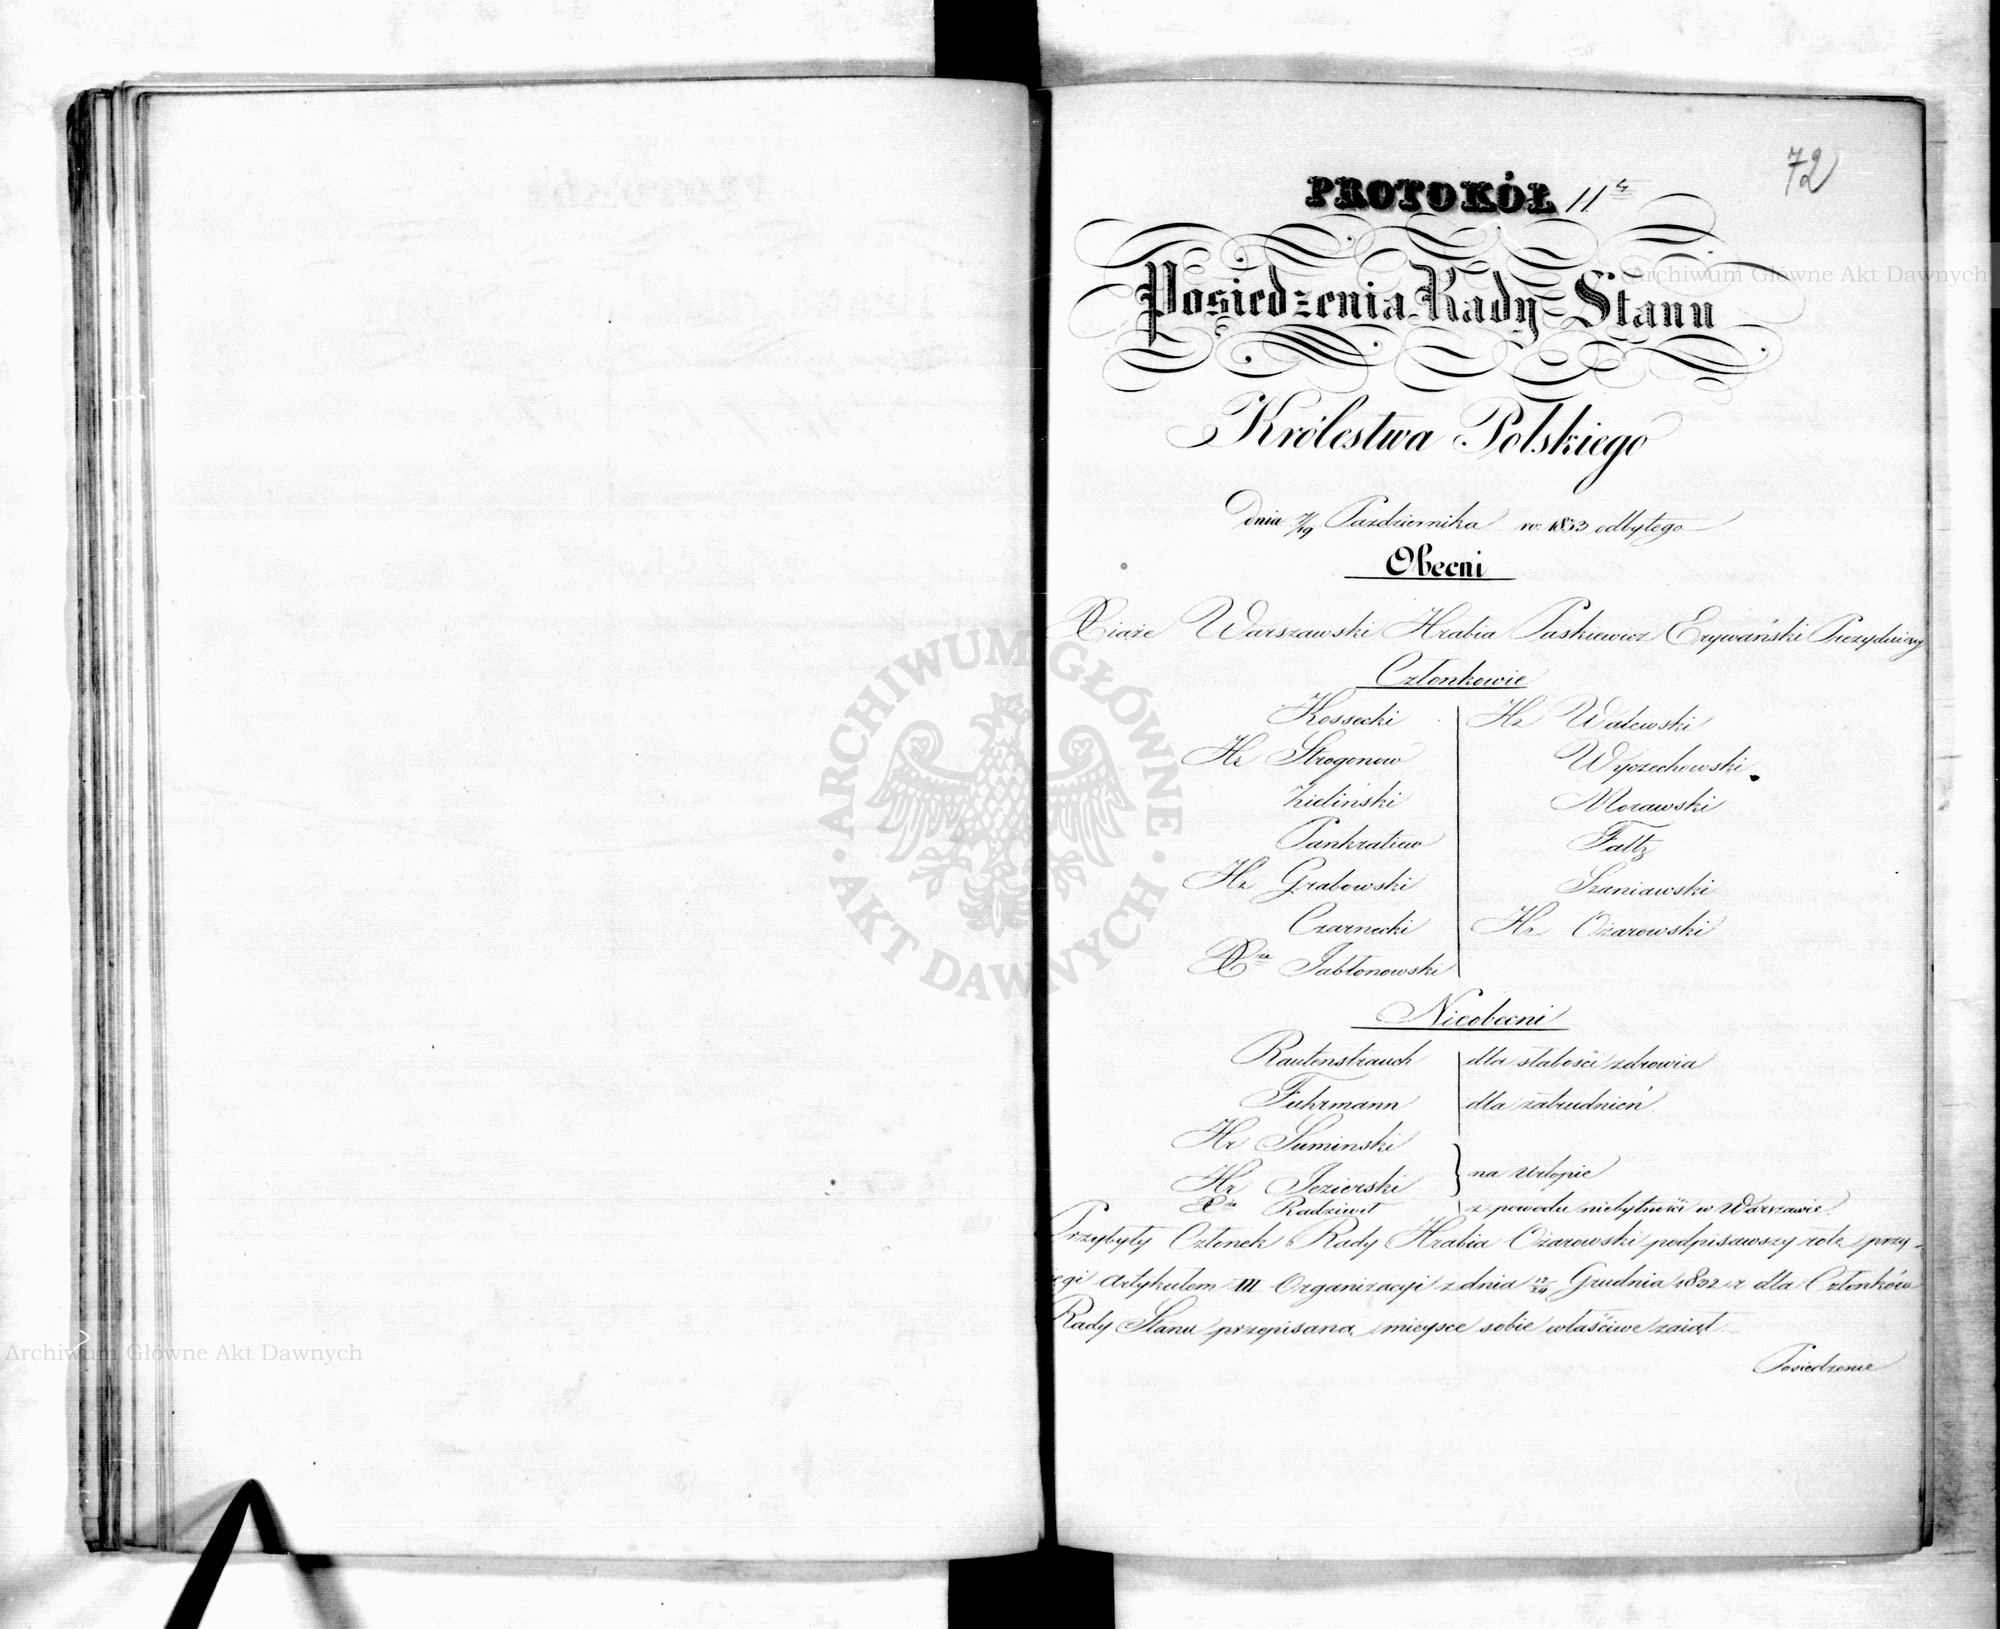 72
PROTOKÓŁ 11
Posiedzenia Rady Stanu
Królestwa Polskiego
Dnia 7/19 Pazdziernika ro: 1833 odbytego
Obecni
Xiąże Warszawski Hrabia Paskiewicz Erywański Prezydujący
Członkowie
Kossecki
Hr Strogonow
Zieliński
Pankratiew
Hr Grabowski
Czarnecki
Xże Jabłonowski
Hr Walewski
Wyczechowski
Morawski
Faltz
Szaniawski
Hr Ożarowski
Nieobecni
Rautenstrauch dla słabości zdrowia
Fuhrmann dla zatrudnień
Hr Suminski
Hr Jezierski na urlopie
Xże Radziwił z powodu niebytności w Warszawie
Przybyły Członek Rady Hrabia Ożarowski podpisawszy rotę przy-
sięgi artykułem III Organizacyi z dnia 12/24 Grudnia 1832 r dla Członków
Rady Stanu przepisaną, mieysce sobie właściwe zaiął.
Posiedzenie
Archiwum Główne Akt Dawnych
ARCHIWUM GŁÓWNE AKT DAWNYCH
Archiwum Główne Akt Dawnych